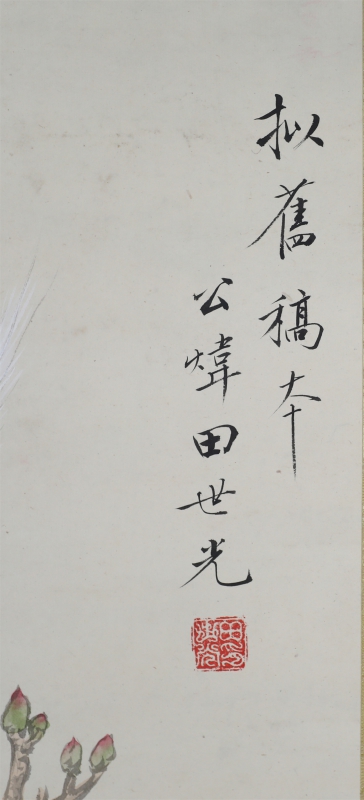 拟舊稿本
公煒田世光